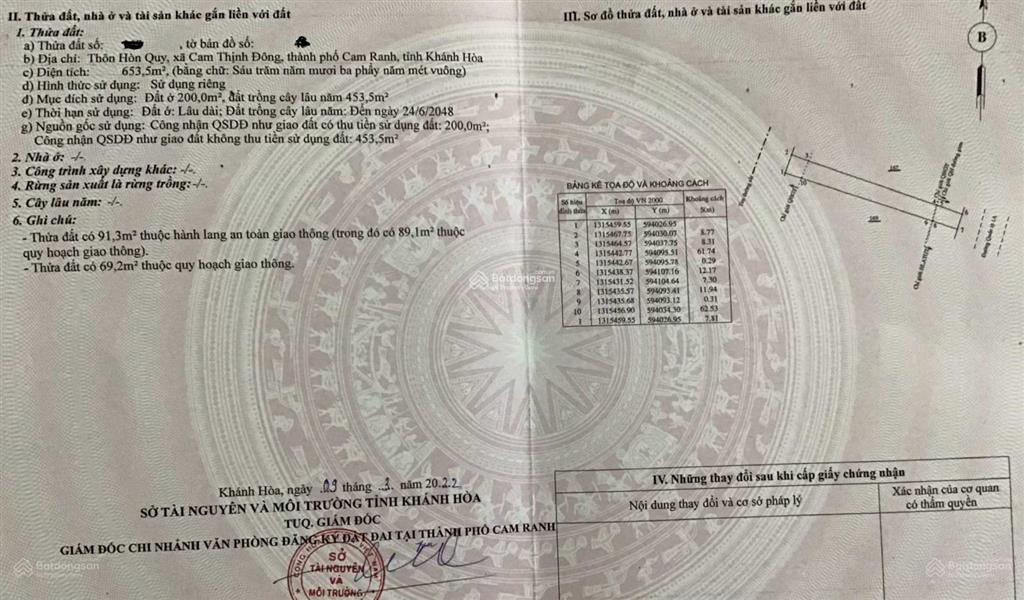 II. Thửa đất, nhà ở và tài sản khác gắn liền với đất
1. Thửa đất:
a) Thửa đất số: , tờ bản đồ số:
b) Địa chỉ: Thôn Hòn Quy, xã Cam Thịnh Đông, thành phố Cam Ranh, tỉnh Khánh Hòa
c) Diện tích: 653,5m², (bằng chữ: Sáu trăm năm mươi ba phẩy năm mét vuông)
d) Hình thức sử dụng: Sử dụng riêng
đ) Mục đích sử dụng: Đất ở 200,0m², đất trồng cây lâu năm 453,5m²
e) Thời hạn sử dụng: Đất ở: Lâu dài; Đất trồng cây lâu năm: Đến ngày 24/6/2048
g) Nguồn gốc sử dụng: Công nhận QSDĐ như giao đất có thu tiền sử dụng đất: 200,0m²;
Công nhận QSDĐ như giao đất không thu tiền sử dụng đất: 453,5m²
2. Nhà ở: -/-
3. Công trình xây dựng khác: -/-
4. Rừng sản xuất là rừng trồng: -/-.
5. Cây lâu năm: -/-.
6. Ghi chú:
- Thửa đất có 91,3m² thuộc hành lang an toàn giao thông (trong đó có 89,1m² thuộc
quy hoạch giao thông).
- Thửa đất có 69,2m² thuộc quy hoạch giao thông.
Khánh Hòa, ngày 09 tháng 3 năm 2022
SỞ TÀI NGUYÊN VÀ MÔI TRƯỜNG TỈNH KHÁNH HÒA
TUQ. GIÁM ĐỐC
GIÁM ĐỐC CHI NHÁNH VĂN PHÒNG ĐĂNG KÝ ĐẤT ĐAI TẠI THÀNH PHỐ CAM RANH
SỞ
TÀI NGUYÊN
VÀ
MÔI TRƯỜNG
III. Sơ đồ thửa đất, nhà ở và tài sản khác gắn liền với đất
B
BẢNG KÊ TỌA ĐỘ VÀ KHOẢNG CÁCH
Số hiệu đỉnh thửa Tọa độ VN 2000 Khoảng cách
X (m) Y (m) S(m)
1 1315459.55 594026.95
2 1315467.75 594030.07 8.77
3 1315464.57 594037.75 8.31
4 1315442.77 594095.51 61.74
5 1315442.67 594095.78 0.29
6 1315438.37 594107.16 12.17
7 1315431.52 594104.64 7.30
8 1315435.57 594093.41 11.94
9 1315435.68 594093.12 0.31
10 1315456.90 594034.30 62.53
1 1315459.55 594026.95 7.81
IV. Những thay đổi sau khi cấp giấy chứng nhận
Nội dung thay đổi và cơ sở pháp lý
Xác nhận của cơ quan
có thẩm quyền
Batdongsan
Batdongsan
Batdongsan